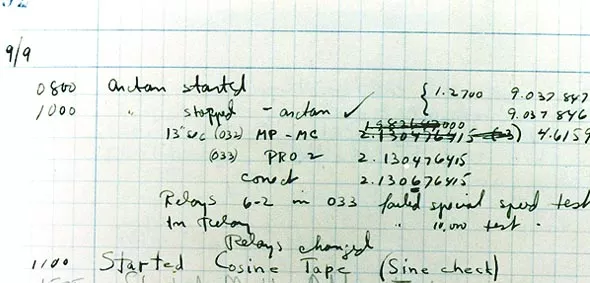 9/9
0800 arctan started { 1.2700 9.037 847
1000 " stopped - arctan ✓ 9.037 846
13" sec (032) MP - MC 2.130476415 (-3) 4.6159
(033) PRO 2 2.130476415
conect 2.130676415
Relays 6-2 in 033 failed special speed test
In Relay " 10.000 test .
Relays changed
1100 Started Cosine Tape (Sine check)